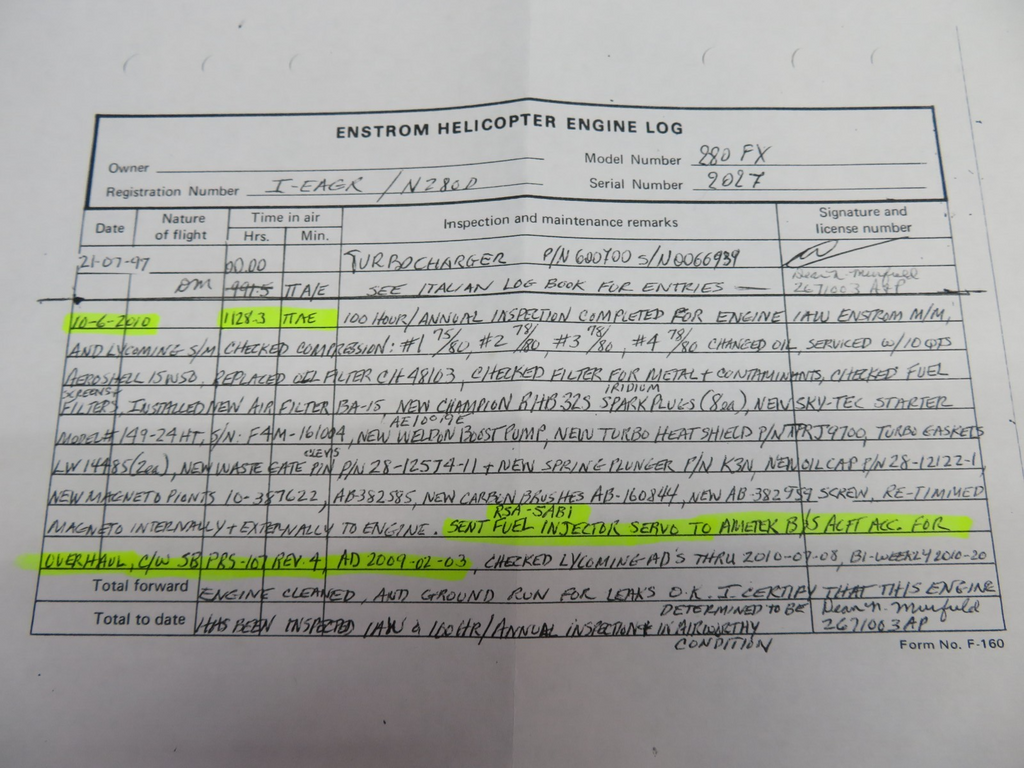 ENSTROM HELICOPTER ENGINE LOG
Owner
Model Number 280 FX
Registration Number I-EAGR / N280D
Serial Number 2027
Date Nature of flight Time in air Hrs. Min. Inspection and maintenance remarks Signature and license number
21-07-97 00.00 TURBOCHARGER P/N 600700 S/N 0066939
DM 991.5 TTA/E SEE ITALIAN LOG BOOK FOR ENTRIES 2671003 A&P
10-6-2010 1128.3 TTAE 100 HOUR/ANNUAL INSPECTION COMPLETED FOR ENGINE IAW ENSTROM M/M,
AND LYCOMING S/M CHECKED COMPRESSION: #1 75/80, #2 78/80, #3 78/80, #4 78/80 CHANGED OIL, SERVICED W/10 QTS
AEROSHELL 15W50, REPLACED OIL FILTER CH48103, CHECKED FILTER FOR METAL + CONTAMINANTS, CHECKED FUEL
SCREENS + FILTERS, INSTALLED NEW AIR FILTER BA-15, NEW CHAMPION RHB32S IRIDIUM SPARK PLUGS (8ea), NEW SKY-TEC STARTER
MODEL# 149-24HT, S/N: F4M-161004, NEW WELDON BOOST PUMP, NEW TURBO HEAT SHIELD P/N TPRJ9700, TURBO GASKETS
LW14485 (2ea), NEW WASTE GATE CLEVIS PIN P/N 28-12574-11 + NEW SPRING PLUNGER P/N K3N, NEW OIL CAP P/N 28-12122-1,
NEW MAGNETO PIONTS 10-387622, AB-382585, NEW CARBON BRUSHES AB-160844, NEW AB-382959 SCREW, RE-TIMMED
MAGNETO INTERNALLY + EXTERNALLY TO ENGINE. SENT RSA-5AB1 FUEL INJECTOR SERVO TO AMETEK B/S ACFT ACC. FOR
OVERHAUL, C/W SB PRS-107 REV. 4, AD 2009-02-03, CHECKED LYCOMING AD'S THRU 2010-07-08, BI-WEEKLY 2010-20
Total forward ENGINE CLEANED, AND GROUND RUN FOR LEAKS O.K. I CERTIFY THAT THIS ENGINE
Total to date HAS BEEN INSPECTED IAW a 100HR/ANNUAL INSPECTION + DETERMINED TO BE IN AIRWORTHY CONDITION 2671003 AP
Form No. F-160